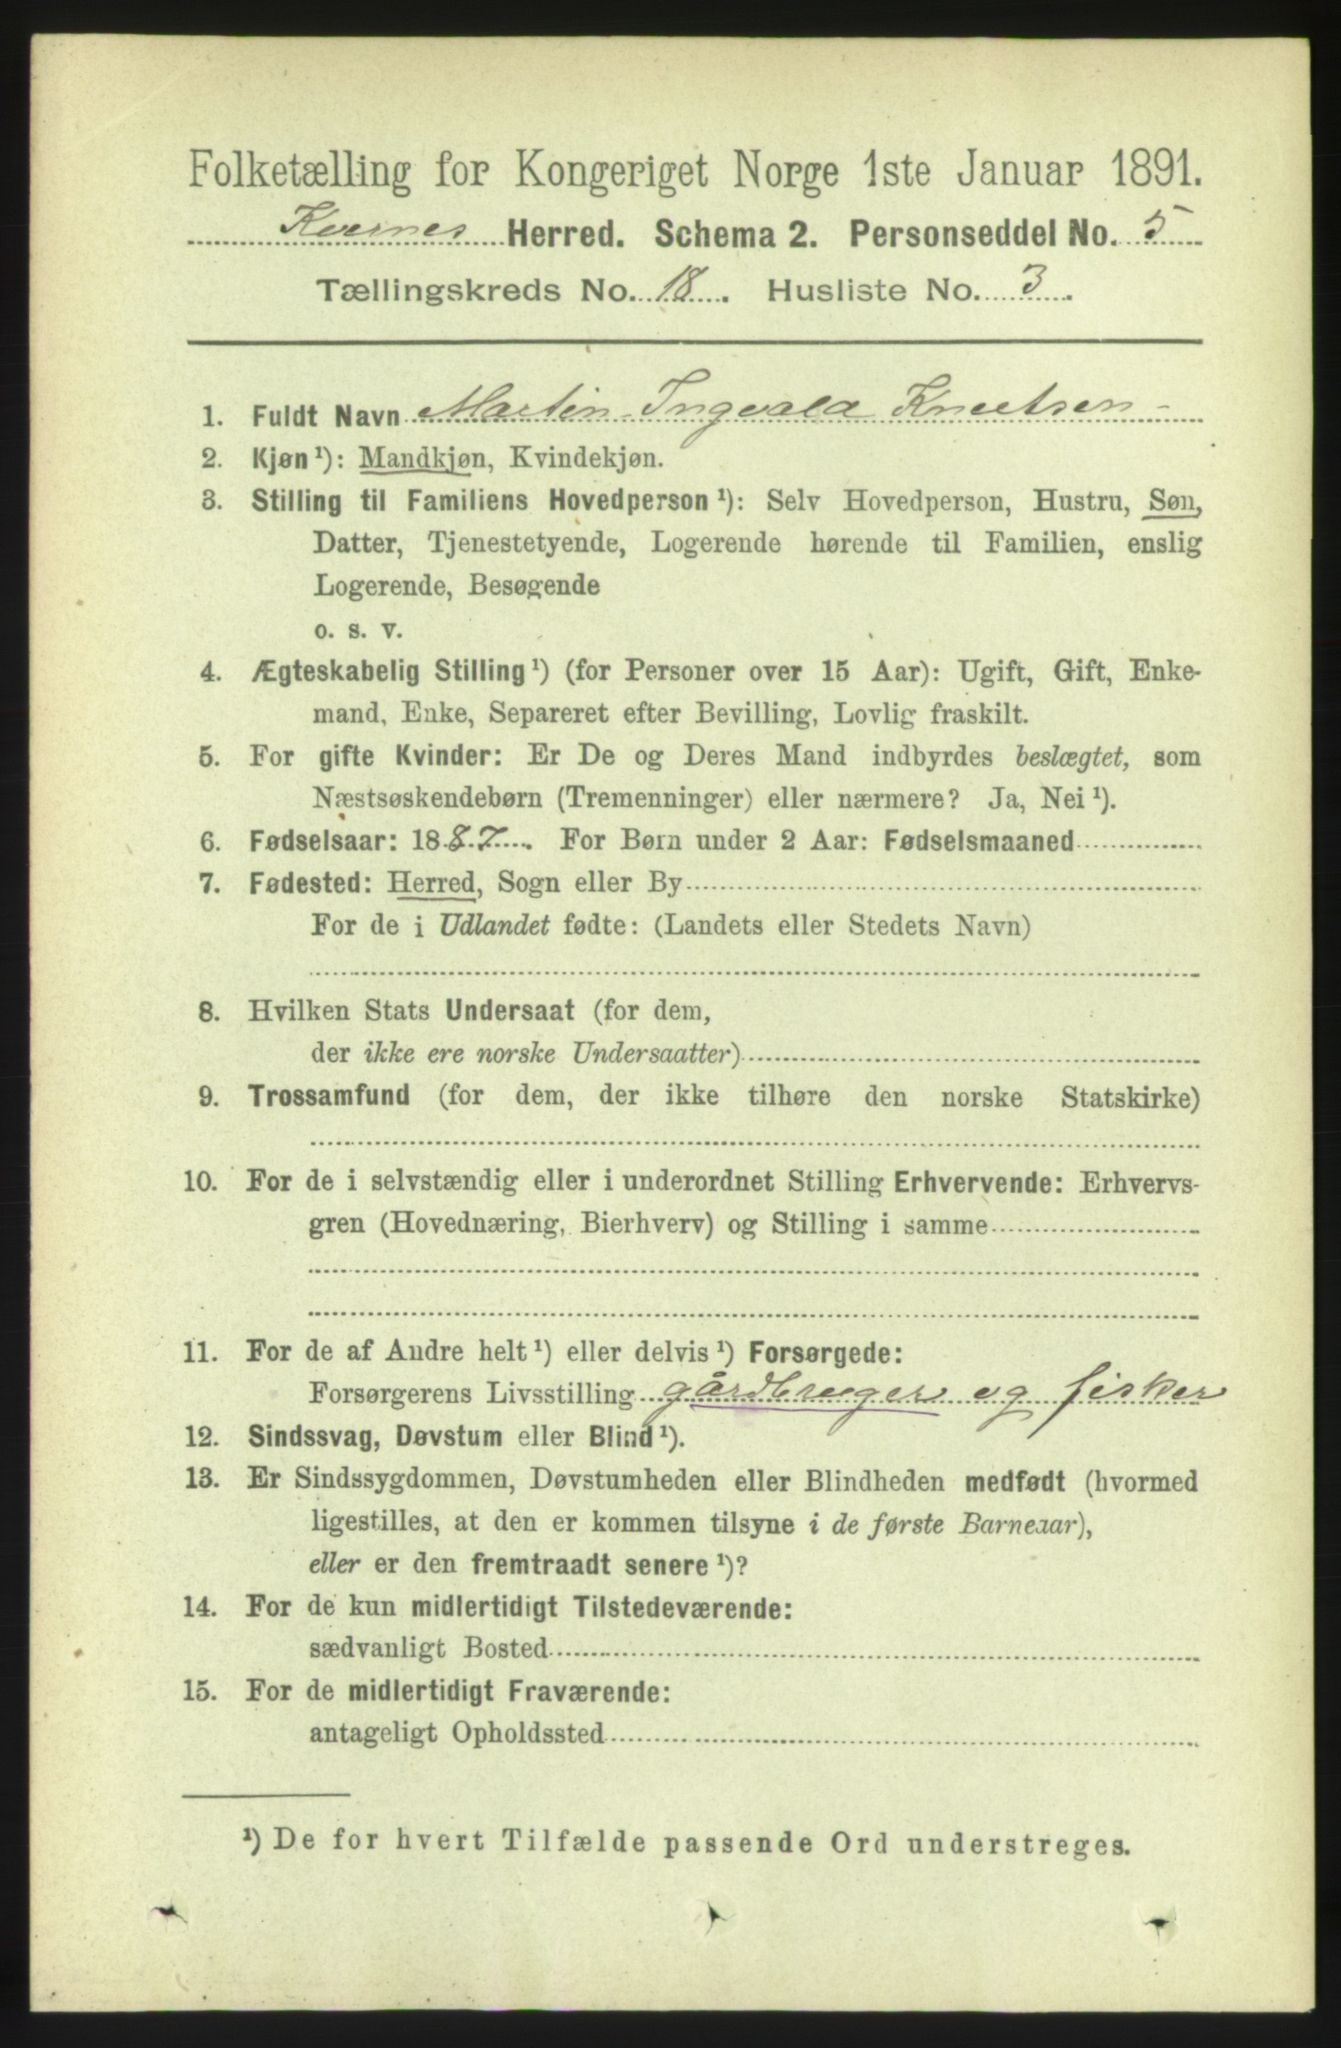 Folketælling for Kongeriget Norge 1ste Januar 1891.
Kvernes Herred. Schema 2. Personseddel No. 5
Tællingskreds No. 18. Husliste No. 3.
1. Fuldt Navn Martin Ingvald Knutsen
2. Kjøn¹): Mandkjøn, Kvindekjøn.
3. Stilling til Familiens Hovedperson¹): Selv Hovedperson, Hustru, Søn,
Datter, Tjenestetyende, Logerende hørende til Familien, enslig
Logerende, Besøgende
o. s. v.
4. Ægteskabelig Stilling¹) (for Personer over 15 Aar): Ugift, Gift, Enke-
mand, Enke, Separeret efter Bevilling, Lovlig fraskilt.
5. For gifte Kvinder: Er De og Deres Mand indbyrdes beslægtet, som
Næstsøskendebørn (Tremenninger) eller nærmere? Ja, Nei¹).
6. Fødselsaar: 1887. For Børn under 2 Aar: Fødselsmaaned
7. Fødested: Herred, Sogn eller By
For de i Udlandet fødte: (Landets eller Stedets Navn)
8. Hvilken Stats Undersaat (for dem,
der ikke ere norske Undersaatter)
9. Trossamfund (for dem, der ikke tilhøre den norske Statskirke)
10. For de i selvstændig eller i underordnet Stilling Erhvervende: Erhvervs-
gren (Hovednæring, Bierhverv) og Stilling i samme
11. For de af Andre helt¹) eller delvis¹) Forsørgede:
Forsørgerens Livsstilling gårdbruger og fisker
12. Sindssvag, Døvstum eller Blind¹).
13. Er Sindssygdommen, Døvstumheden eller Blindheden medfødt (hvormed
ligestilles, at den er kommen tilsyne i de første Barneaar),
eller er den fremtraadt senere¹)?
14. For de kun midlertidigt Tilstedeværende:
sædvanligt Bosted
15. For de midlertidigt Fraværende:
antageligt Opholdssted
¹) De for hvert Tilfælde passende Ord understreges.